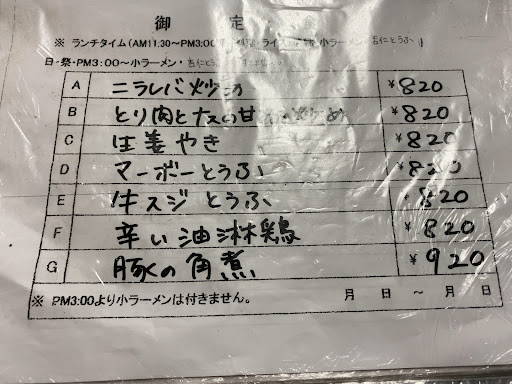 御 定 食
※ ランチタイム(AM11:30~PM3:00 ライス 小ラーメン・杏仁とうふ
日・祭・PM3:00~小ラーメン・杏仁とうふ
A ニラレバ炒め ¥820
B とり肉とナスの甘 炒め ¥820
C 生姜やき ¥820
D マーボーとうふ ¥820
E 牛スジとうふ ¥820
F 辛い油淋鶏 ¥820
G 豚の角煮 ¥920
※ PM3:00より小ラーメンは付きません。 月 日 ~ 月 日